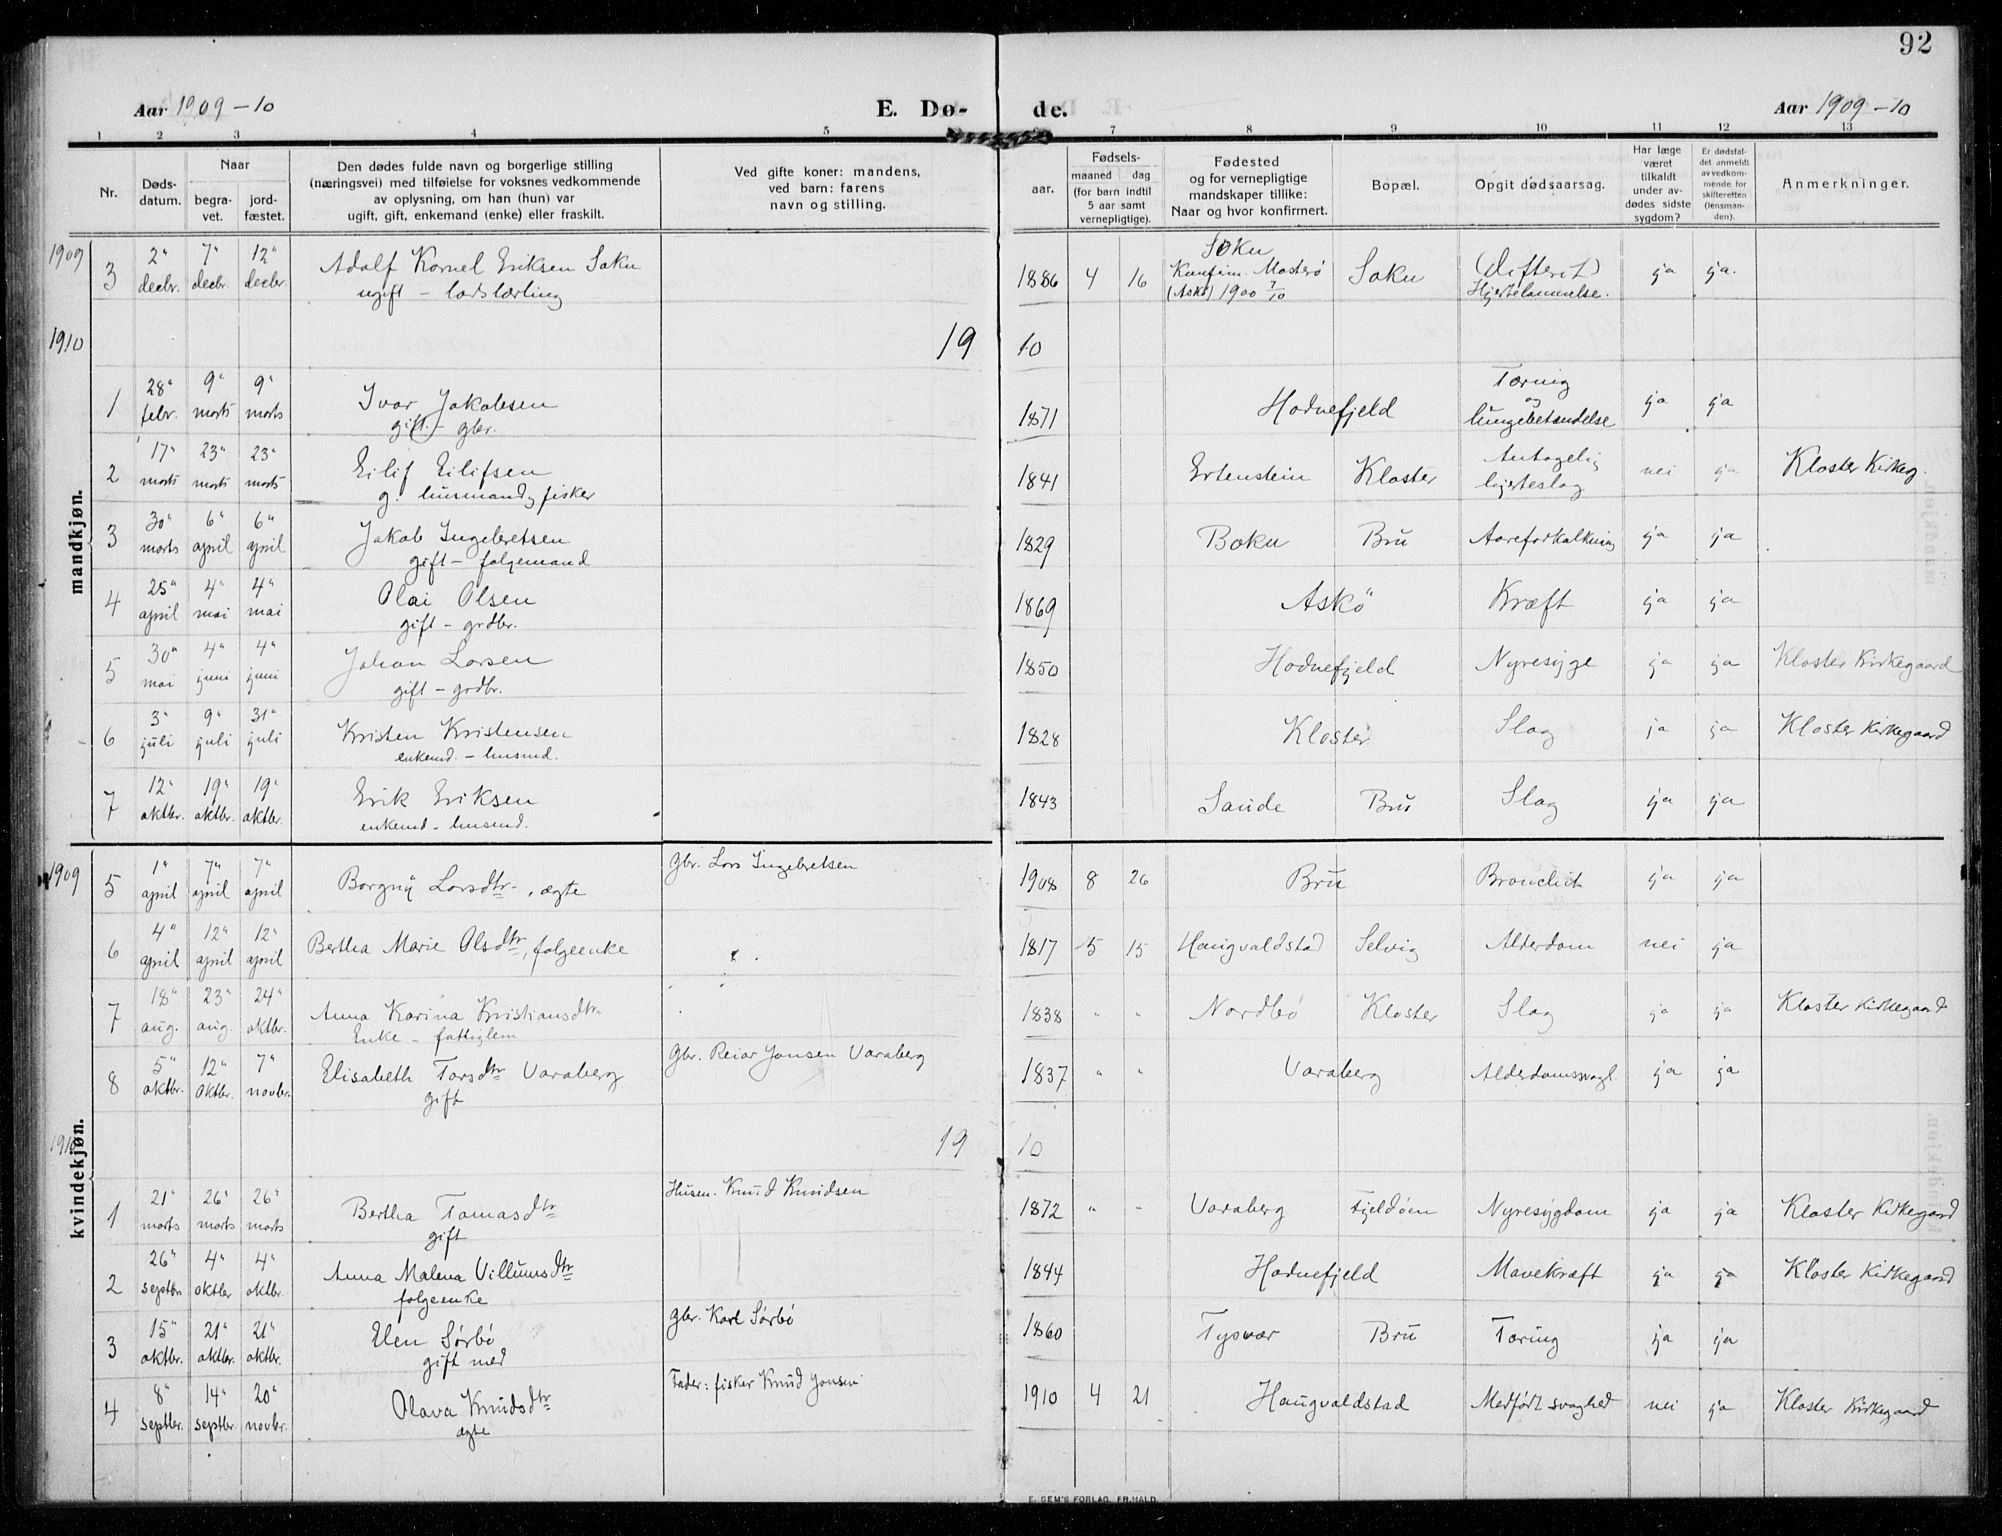 92
Aar 1909-10 E. Dø- de. Aar 1909-10
1 2 3 4 5 7 8 9 10 11 12 13
Nr. Døds-datum. Naar begra-vet. jord-fæstet. Den dødes fulde navn og borgerlige stilling (næringsvei) med tilføielse for voksnes vedkommende av oplysning, om han (hun) var ugift, gift, enkemand (enke) eller fraskilt. Ved gifte koner: mandens, ved barn: farens navn og stilling. aar. Fødsels- maaned dag (for barn indtil 5 aar samt vernepligtige). Fødested og for vernepligtige mandskaper tillike: Naar og hvor konfirmert. Bopæl. Opgit dødsaarsag. Har læge været tilkaldt under av-dødes sidste sygdom? Er dødsfal-det anmeldt av vedkom-mende for skifteretten (lensman-den). Anmerkninger.
mandkjøn.
1909
3 2" decbr. 7" decbr. 12" decbr. Adolf Kornel Eriksen Soku ugift - lodslærling 1886 4 16 Soku Konfirm. Mosterø (Askø) 1900 7/10 Soku (Difterit) Hjertelammelse. ja ja.
1910 19 10
1 28" febr. 9" marts 9" marts Ivar Jakobsen gift - gbr. 1871 Hodnefjeld Tæring og lungebetændelse ja ja
2 17" marts 23" marts 23" marts Eilif Eilifsen g. husmand, fisker 1841 Ertenstein Kloster Antagelig hjerteslag nei ja Kloster Kirkeg.
3 30" marts 6" april 6" april Jakob Ingebretsen gift - folgemand 1829 Boku Bru Aareforkalkning ja ja
4 25" april 4" mai 4" mai Olai Olsen gift - grdbr. 1869 Askö Kræft ja ja
5 30" mai 4" juni 4" juni Johan Larsen gift - grdbr. 1850 Hodnefjeld Nyresyge ja ja Kloster Kirkegaard
6 3" juli 9" juli 31" juli Kristen Kristensen enkemd. - husmd. 1828 Kloster Slag ja ja Kloster Kirkegaard
7 12" oktbr. 19" oktbr. 19" oktbr. Erik Eriksen enkemd. husmd. 1843 Sande Bru Slag ja ja
kvindekjøn.
1909
5 1" april 7" april 7" april Borgny Larsdtr., ægte Gbr. Lars Ingebretsen 1908 8 26 Bru Bronchit ja ja
6 4" april 12" april 12" april Bertha Marie Olsdtr, folgeenke 1817 5 15 Haugvaldstad Selvig Alderdom nei ja
7 18" aug. 23" aug. 24" oktbr. Anna Karina Kristiansdtr Enke - fattiglem 1838 " " Nordbö Kloster Slag ja ja Kloster Kirkegaard
8 5" oktbr. 12" oktbr. 7" novbr. Elisabeth Tarsdtr Varaberg gift Gbr. Reiar Jonsen Varaberg 1837 " " Varaberg Alderdomssvagh. ja ja
1910 19 10
1 21" marts 26" marts 26" marts Bertha Tomasdtr gift Husm. Knud Knudsen 1872 " " Varaberg Fjeldöen Nyresygdom ja ja Kloster Kirkegaard
2 26" septbr. 4" oktbr 4" oktbr. Anna Malena Villumsdtr folgeenke 1844 Hodnefjeld Mavekræft ja ja Kloster Kirkegaard
3 15" oktbr. 21" oktbr. 21" oktbr. Elen Sørbö gift med gbr. Karl Sørbö 1860 Tysvær Bru Tæring ja ja
4 8" septbr. 14" septbr. 20" novbr. Olava Knudsdtr ægte Fader: fisker Knud Jonsen 1910 4 21 Haugvaldstad Medfødt svaghed nei ja Kloster Kirkegaard
E. SEM'S FORLAG, FR.HALD.